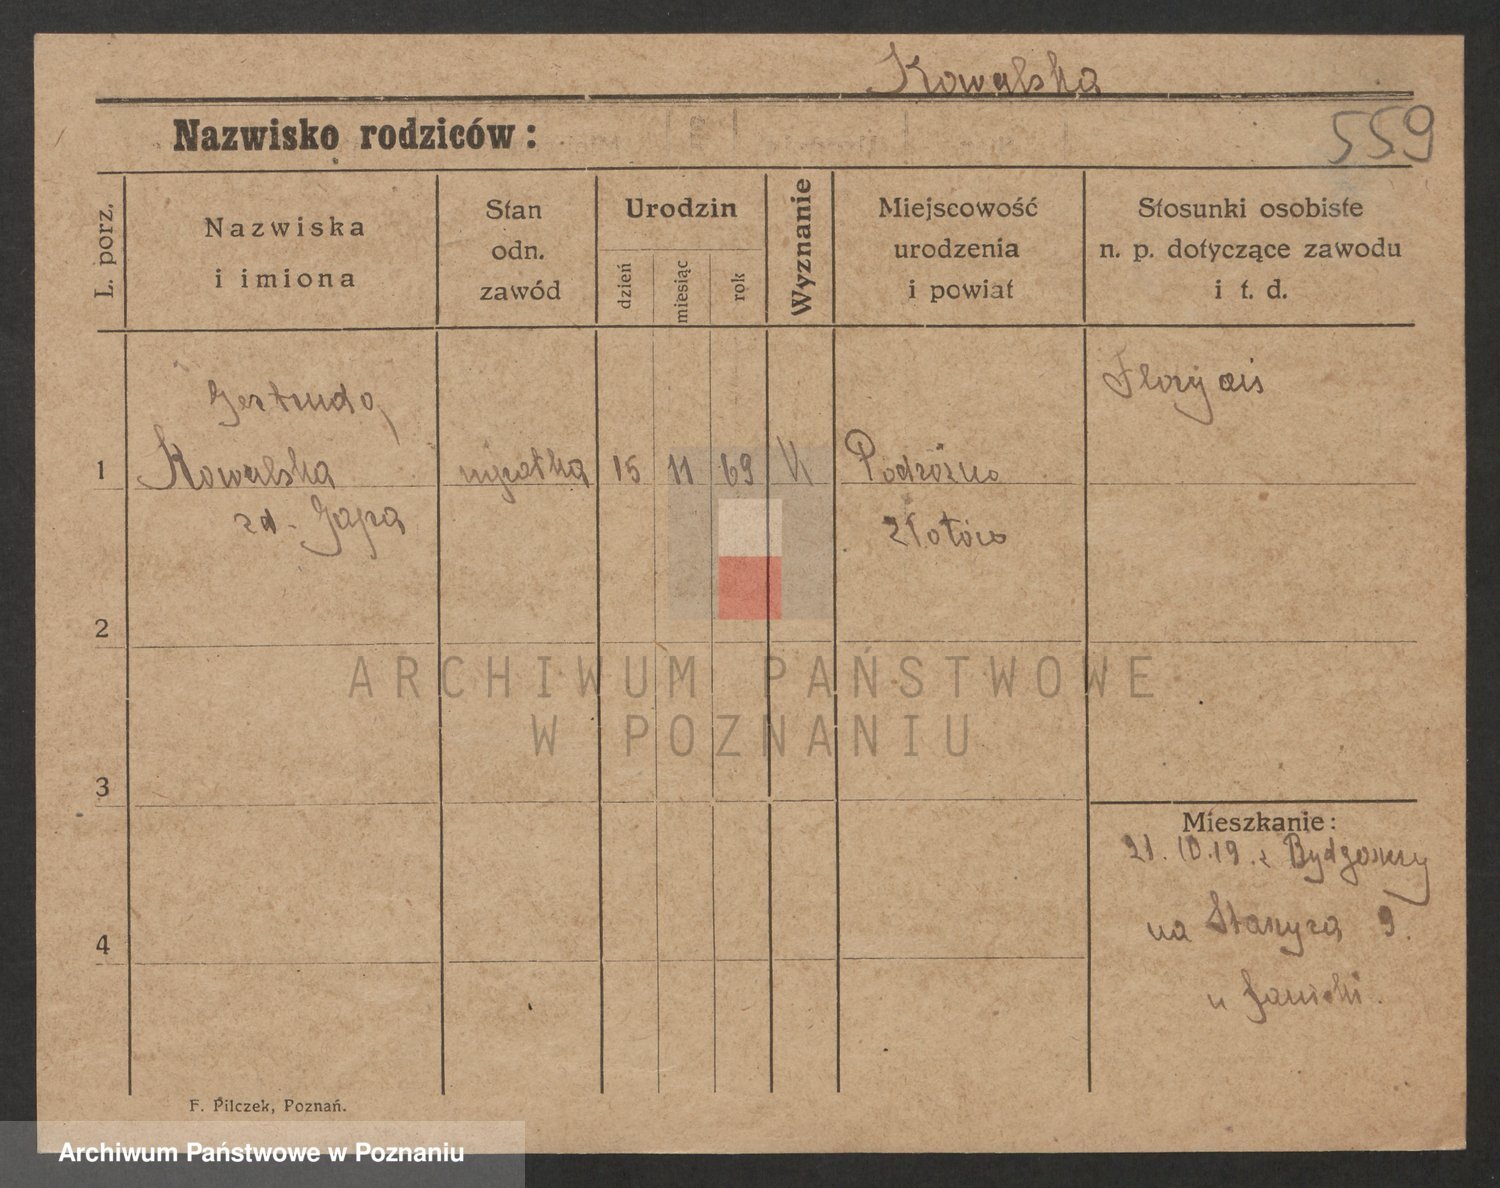 Kowalska
559
Nazwisko rodziców:
L. porz.
Nazwiska
i imiona
Stan
odn.
zawód
Urodzin
dzień
miesiąc
rok
Wyznanie
Miejscowość
urodzenia
i powiat
Stosunki osobiste
n. p. dotyczące zawodu
i t. d.
Gertruda
1 Kowalska 15 11 69 K Podróżno
Złotów
2
3
4
Mieszkanie:
21.10.19. z Bydgoszczy
na 9.
u
ARCHIWUM PAŃSTWOWE
W POZNANIU
F. Pilczek, Poznań.
Archiwum Państwowe w Poznaniu